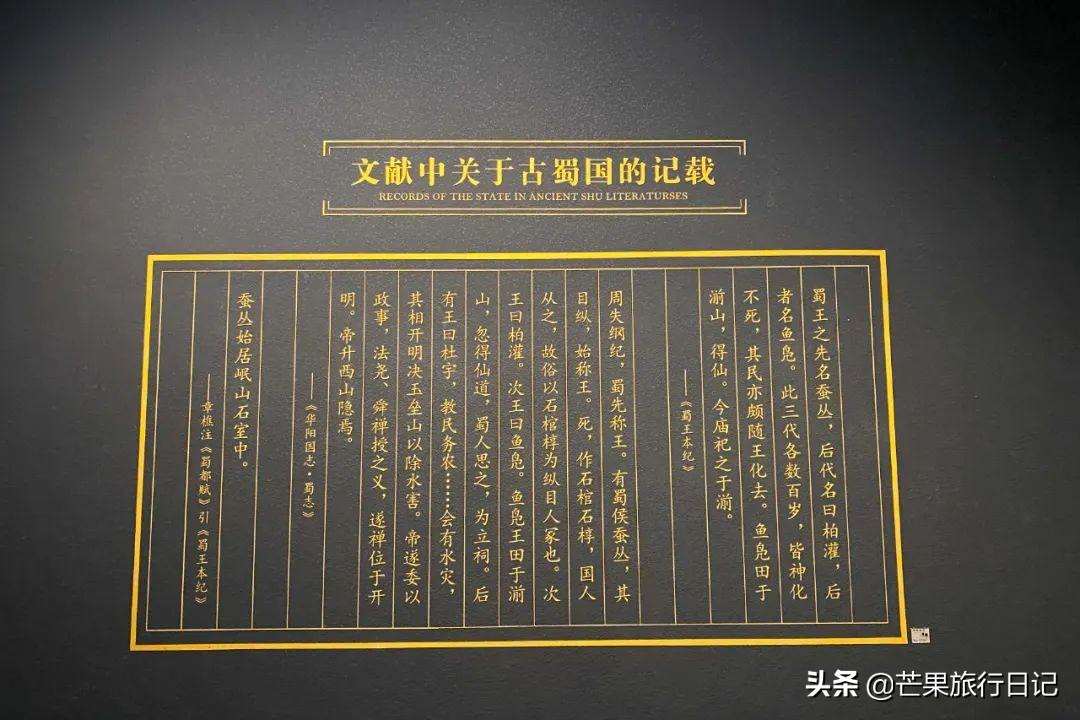 文献中关于古蜀国的记载
RECORDS OF THE STATE IN ANCIENT SHU LITERATURSES
蜀王之先名蚕丛，后代名曰柏灌，后
者名鱼凫。此三代各数百岁，皆神化
不死，其民亦颇随王化去。鱼凫田于
湔山，得仙。今庙祀之于湔。
——《蜀王本纪》
周失纲纪，蜀先称王。有蜀侯蚕丛，其
目纵，始称王。死，作石棺石椁，国人
从之，故俗以石棺椁为纵目人冢也。次
王曰柏灌。次王曰鱼凫。鱼凫王田于湔
山，忽得仙道，蜀人思之，为立祠。后
有王曰杜宇，教民务农……会有水灾，
其相开明决玉垒山以除水害。帝遂委以
政事，法尧、舜禅授之义，遂禅位于开
明。帝升西山隐焉。
——《华阳国志·蜀志》
蚕丛始居岷山石室中。
——章樵注《蜀都赋》引《蜀王本纪》
头条 @芒果旅行日记